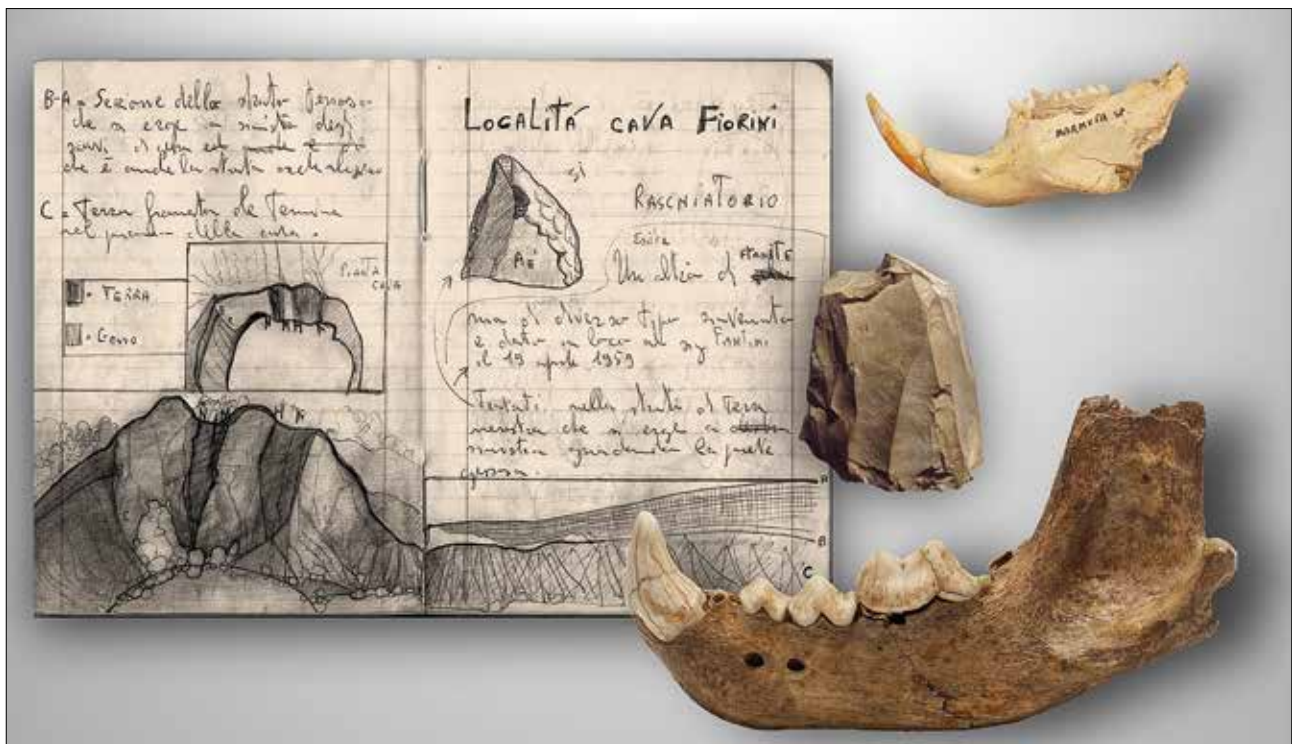 B-A = Sezione dello strato terroso
che si erge in sinistra degli
che è anche lo strato
C = Terra franata che termina
nel piano della cava.
PIANTA
CAVA
= TERRA
= GESSO
LOCALITÁ CAVA FIORINI
RASCHIATORIO
Un altro di FTANITE
ma di diverso tipo rinvenuto
e dato in loco al sig FANTINI
il 19 aprile 1959
Trovati nello strato di terra
nerastra che si erge a
sinistra guardando la parete
gessosa.
B
C
MARMOTA